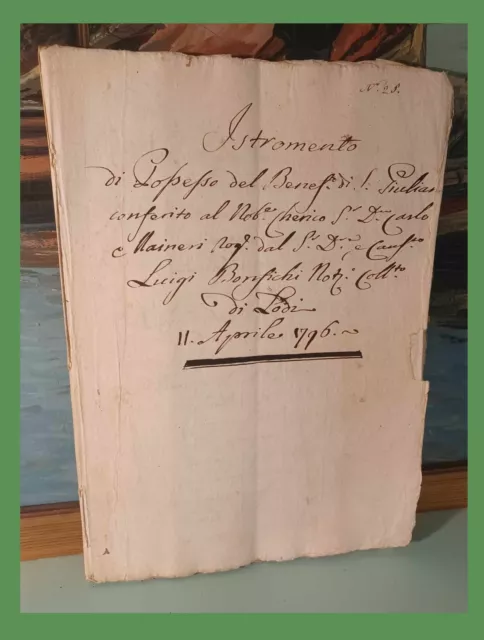 N.º 28.
Istromento
di Possesso del Benef.º di S. Giulian
conferito al Nob.e Cherico Sr. Dn. Carlo
Maineri Rog.º dal Sr. Dr. e Caus.co
Luigi Bonsichi Not.º Coll.to
di Lodi
11. Aprile 1796.